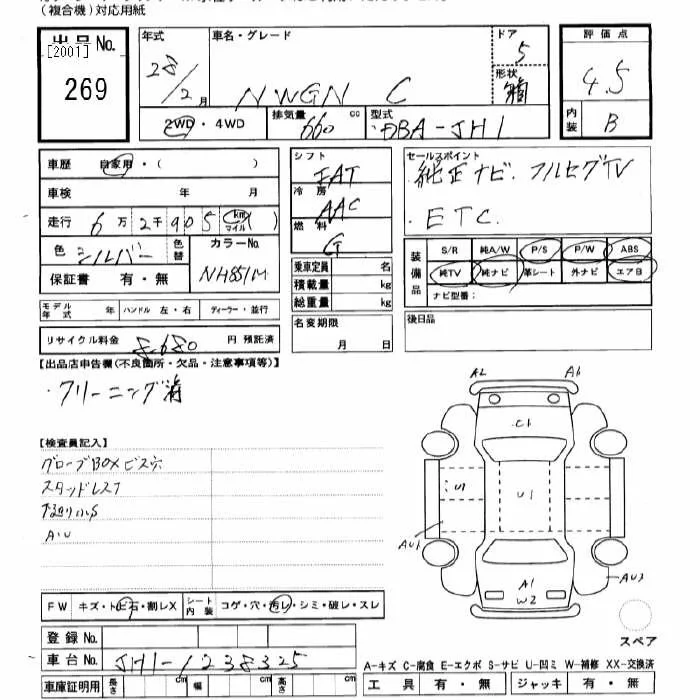 （複合機）対応用紙
出品No.
[2001]
269
年式
28/2月
車名・グレード
NWGN C
ドア
5
形状
箱
評価点
4.5
内装
B
2WD・4WD
排気量
660 cc
型式
DBA-JH1
車歴 自家用・( )
車検 年 月
走行 6万2千905 km マイル ( )
色 シルバー 色替
カラーNo.
NH851M
保証書 有・無
シフト
FAT
冷房
AAC
燃料
G
乗車定員 名
積載量 kg
総重量 kg
セールスポイント
純正ナビ フルセグTV
・ETC
装備品
S/R 純A/W P/S P/W ABS
純TV 純ナビ 革シート 外ナビ エアB
ナビ型番：
モデル年式 年 ハンドル 左・右 ディーラー・並行
リサイクル料金 8,680 円 預託済
名変期限
月 日
後日品
【出品店申告欄(不良箇所・欠品・注意事項等)】
・クリーニング済
【検査員記入】
グローブBOXビス穴
スタッドレス
下廻り小S
A・U
A2
A6
C1
U1
U1
AU1
A1
W2
AU3
FW キズ・トビ石・割レX
シート内装 コゲ・穴・汚レ・シミ・破レ・スレ
登録No.
車台No. JH1-1238325
車庫証明用 長さ cm 幅 cm 高さ cm
スペア
A-キズ C-腐食 E-エクボ S-サビ U-凹ミ W-補修 XX-交換済
工具 有・無 ジャッキ 有・無